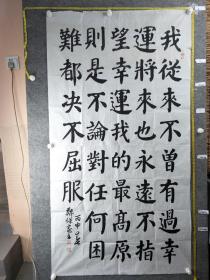 我從來不曾有過幸
運將來也永遠不指
望幸運我的最高原
則是不論對任何困
難都决不屈服